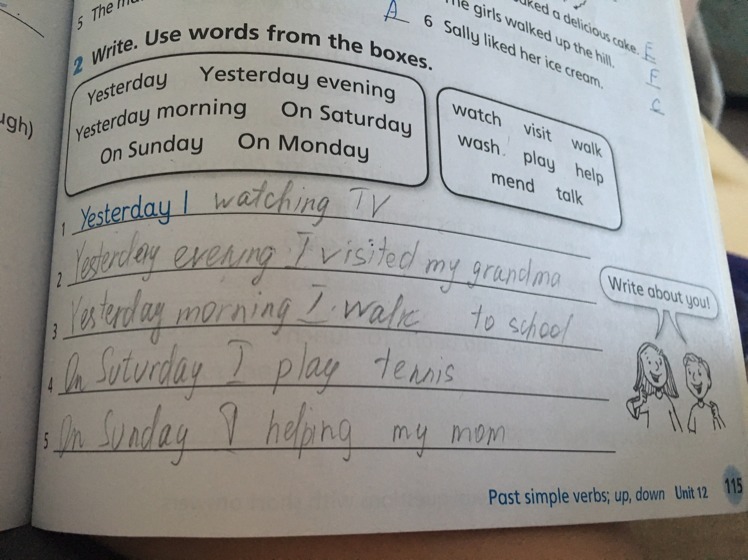 5 The
aked a delicious cake. E
he girls walked up the hill. F
A 6 Sally liked her ice cream. C
2 Write. Use words from the boxes.
Yesterday Yesterday evening
Yesterday morning On Saturday
On Sunday On Monday
watch visit walk
wash play help
mend talk
ugh)
1 Yesterday I watching TV
2 Yesterday evening I visited my grandma
3 Yesterday morning I walk to school
4 On Suturday I play tennis
5 On Sunday I helping my mom
Write about you!
Past simple verbs; up, down Unit 12 115